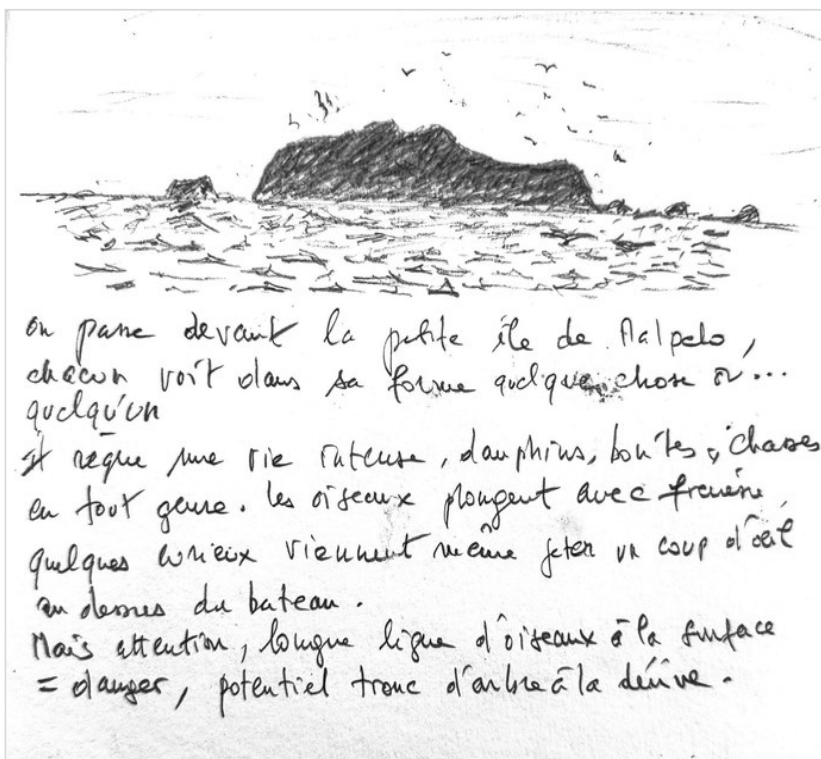 on passe devant la petite île de Malpelo,
chacun voit dans sa forme quelque chose ou...
quelqu'un
Il règne une vie intense, dauphins, bonites, chasses
en tout genre. les oiseaux plongent avec frénésie,
quelques curieux viennent même jeter un coup d'œil
au dessus du bateau.
Mais attention, longue ligne d'oiseaux à la surface
= danger, potentiel tronc d'arbre à la dérive.